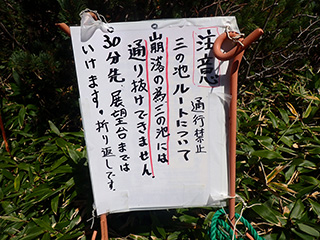 注意
通行禁止
三の池ルートについて
山崩落の為三の池には
通り抜けできません
30分先 展望台までは
いけます。折り返しです。